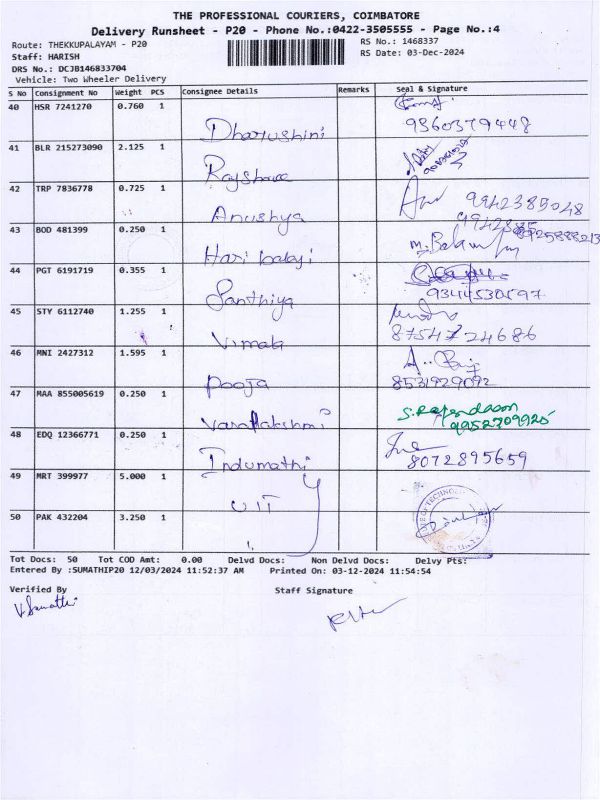 THE PROFESSIONAL COURIERS, COIMBATORE
Delivery Runsheet - P20 - Phone No.:0422-3505555 - Page No.:4
Route: THEKKUPALAYAM - P20
RS No.: 1468337
Staff: HARISH
RS Date: 03-Dec-2024
DRS No.: DCJB146833704
Vehicle: Two Wheeler Delivery
S No Consignment No Weight PCS Consignee Details Remarks Seal & Signature
40 HSR 7241270 0.760 1
Dharushini 9360379448
41 BLR 215273090 2.125 1
42 TRP 7836778 0.725 1
Anushya 9942385048
43 BOD 481399 0.250 1
Hari balaji
44 PGT 6191719 0.355 1
Santhiya 9344530597
45 STY 6112740 1.255 1
Vimala 8754724686
46 MNI 2427312 1.595 1
Pooja 8531929092
47 MAA 855005619 0.250 1
Varalakshmi 9952709925
48 EDQ 12366771 0.250 1
Indumathi 8072895659
49 MRT 399977 5.000 1
50 PAK 432204 3.250 1
Tot Docs: 50 Tot COD Amt: 0.00 Delvd Docs: Non Delvd Docs: Delvy Pts:
Entered By :SUMATHIP20 12/03/2024 11:52:37 AM Printed On: 03-12-2024 11:54:54
Verified By Staff Signature
V. Sumathi